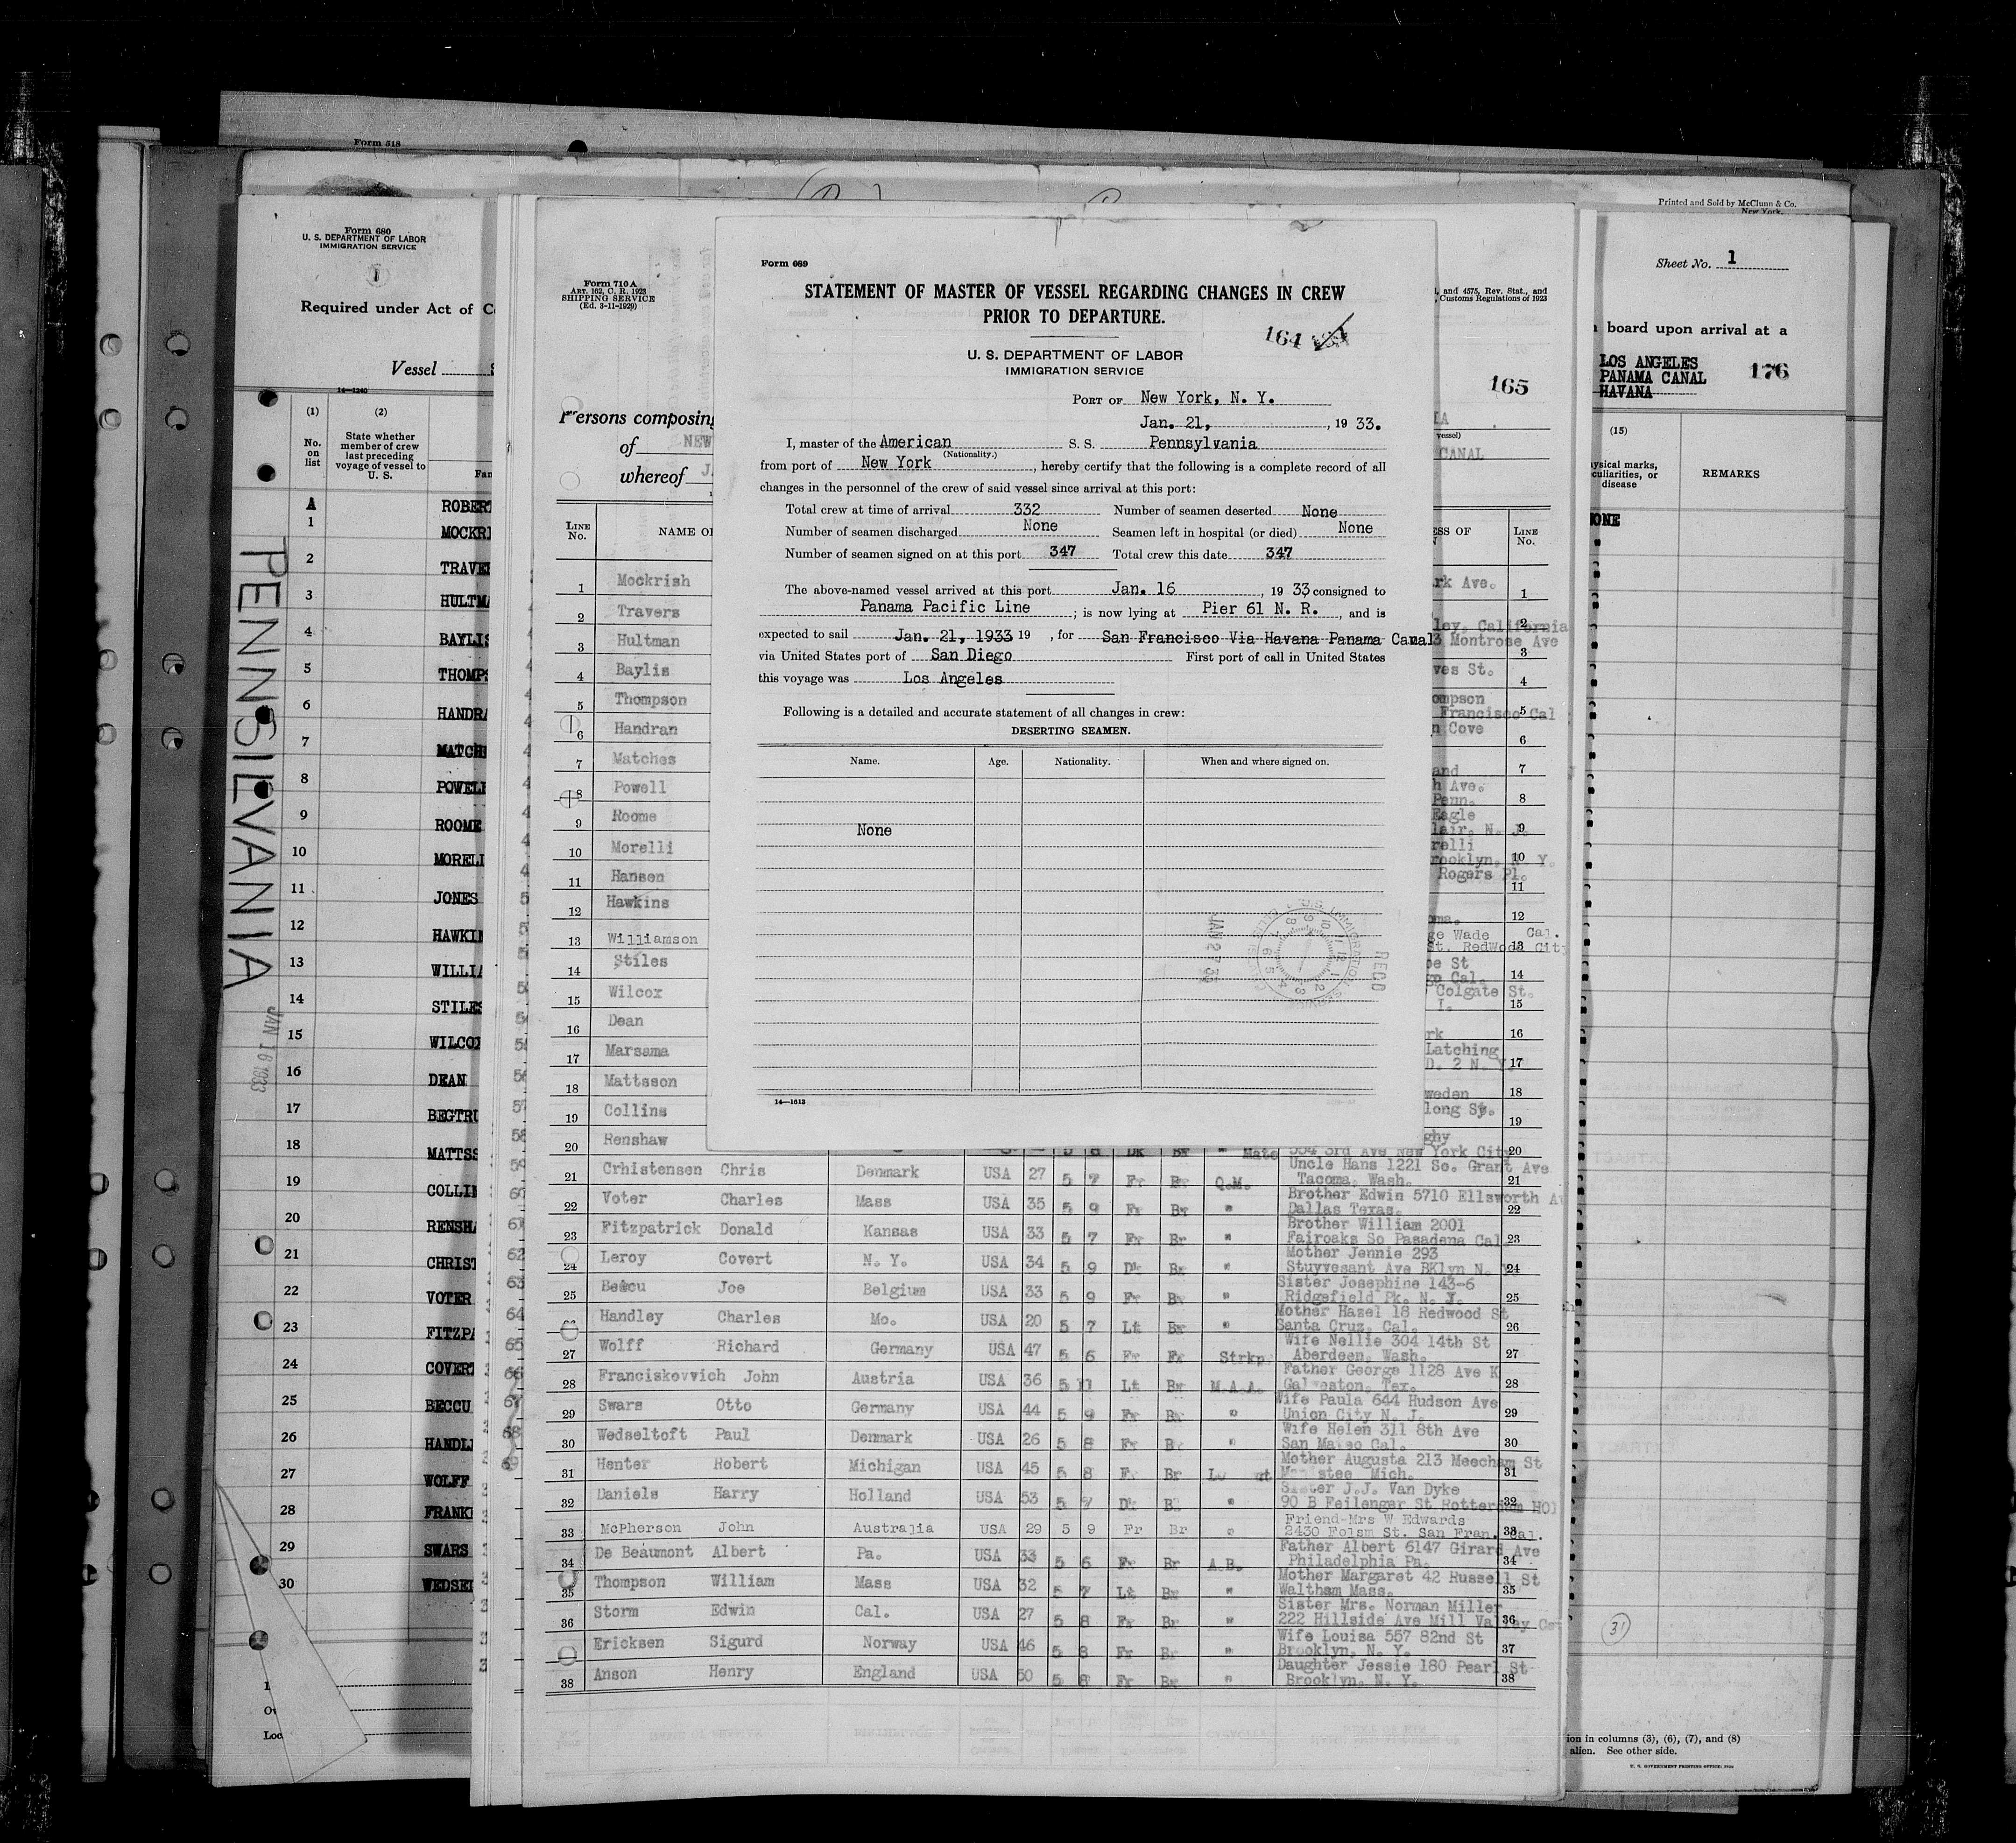 Form 518
Printed and Sold by McClunn & Co.
New York.
Form 680
U. S. DEPARTMENT OF LABOR
IMMIGRATION SERVICE
1
Required under Act of
Vessel
14—1240
(1)
No. on list
(2)
State whether member of crew last preceding voyage of vessel to U. S.
A
1
2
3
4
5
6
7
8
9
10
11
12
13
14
15
16
17
18
19
20
21
22
23
24
25
26
27
28
29
30
ROBER
MOCKRI
TRAVE
HULTMA
BAYLIS
THOMPS
HANDRA
MATCHE
POWELL
ROOME
MORELI
JONES
HAWKIN
WILLIA
STILES
WILCOX
DEAN
BEGTRU
MATTSS
COLLIN
RENSHA
CHRIST
VOTER
FITZPA
COVERT
BECCU
HANDL
WOLFF
FRANKI
SWARS
WEDSEL
PENNSILVANIA
JAN 16 1933
Form 710A
ART. 162, C. R. 1923
SHIPPING SERVICE
(Ed. 3-11-1929)
and 4575, Rev. Stat., and
Customs Regulations of 1923
165
Persons composing
of NEW
whereof J
CANAL
LINE No.
NAME O
SS OF
LINE No.
1 Mockrish rk Ave. 1
2 Travers ley, California 2
3 Hultman 3 Montrose Ave 3
4 Baylis ves St. 4
5 Thompson ompson Francisco Cal 5
6 Handran n Cove 6
7 Matches and 7
8 Powell h Ave. Penn. 8
9 Roome Eagle lair, N. J. 9
10 Morelli relli rooklyn, N. Y. 10
11 Hansen Rogers Pl. 11
12 Hawkins oma. 12
13 Williamson ge Wade Cal. St. Redwood Cit 13
14 Stiles oe St go Cal. 14
15 Wilcox Colgate St. I. 15
16 Dean rk 16
17 Marsama Latching D. 2 N. Y. 17
18 Mattsson weden 18
19 Collins long Sy. 19
20 Renshaw Mate ghy 554 3rd Ave New York City 20
21 Crhistensen Chris Denmark USA 27 5 7 Fr Br Q.M. Uncle Hans 1221 So. Grant Ave Tacoma, Wash. 21
22 Voter Charles Mass USA 35 5 9 Fr Br " Brother Edwin 5710 Ellsworth Av Dallas Texas. 22
23 Fitzpatrick Donald Kansas USA 33 5 7 Fr Br " Brother William 2001 Fairoaks So Pasadena Cal 23
24 Leroy Covert N. Y. USA 34 5 9 Dk Br " Mother Jennie 293 Stuyvesant Ave BKlyn N. 24
25 Beccu Joe Belgium USA 33 5 9 Fr Br " Sister Josephine 143-6 Ridgefield Pk. N. J. 25
Handley Charles Mo. USA 20 5 7 Lt Br " Mother Hazel 18 Redwood St Santa Cruz, Cal. 26
27 Wolff Richard Germany USA 47 5 6 Fr Fr Strkp. Wife Nellie 304 14th St Aberdeen, Wash. 27
28 Franciskovvich John Austria USA 36 5 11 Lt Br M.A.A. Father George 1128 Ave K Galveston, Tex. 28
29 Swars Otto Germany USA 44 5 9 Fr Br " Wife Paula 644 Hudson Ave Union City N. J. 29
30 Wedseltoft Paul Denmark USA 26 5 8 Fr Br " Wife Helen 311 8th Ave San Mateo Cal. 30
31 Henter Robert Michigan USA 45 5 8 Fr Br Mother Augusta 213 Meecham St stee Mich. 31
32 Daniels Harry Holland USA 53 5 7 Dk " Sister J.J. Van Dyke 90 B Feilenger St Rotterdam HOl 32
33 McPherson John Australia USA 29 5 9 Fr Br " Friend-Mrs W Edwards 2430 Folsm St. San Fran. Cal. 33
34 De Beaumont Albert Pa. USA 33 5 6 Fr Br A.B. Father Albert 6147 Girard Ave Philadelphia Pa. 34
35 Thompson William Mass USA 32 5 7 Lt Br " Mother Margaret 42 Russell St Waltham Mass. 35
36 Storm Edwin Cal. USA 27 5 8 Fr Br " Sister Mrs. Norman Miller 222 Hillside Ave Mill Valley Ca 36
Ericksen Sigurd Norway USA 46 5 8 Fr Br " Wife Louisa 557 82nd St Brooklyn, N. Y. 37
38 Anson Henry England USA 50 5 8 Fr Br " Daughter Jessie 180 Pearl St Brooklyn, N. Y. 38
Form 689
STATEMENT OF MASTER OF VESSEL REGARDING CHANGES IN CREW
PRIOR TO DEPARTURE.
164
U. S. DEPARTMENT OF LABOR
IMMIGRATION SERVICE
PORT OF New York, N. Y.
Jan. 21, , 19 33.
I, master of the American S. S. Pennsylvania
(Nationality.)
from port of New York , hereby certify that the following is a complete record of all
changes in the personnel of the crew of said vessel since arrival at this port:
Total crew at time of arrival 332 Number of seamen deserted None
Number of seamen discharged None Seamen left in hospital (or died) None
Number of seamen signed on at this port 347 Total crew this date 347
The above-named vessel arrived at this port Jan. 16 , 19 33 consigned to
Panama Pacific Line ; is now lying at Pier 61 N. R. , and is
expected to sail Jan. 21, 1933 19 , for San Francisco Via Havana Panama Canal
via United States port of San Diego First port of call in United States
this voyage was Los Angeles
Following is a detailed and accurate statement of all changes in crew:
DESERTING SEAMEN.
Name. Age. Nationality. When and where signed on.
None
JAN 27 33
RECD
14—1613
Sheet No. 1
board upon arrival at a
LOS ANGELES
PANAMA CANAL
HAVANA
176
(15)
ysical marks,
culiarities, or
disease
REMARKS
NONE
31
ion in columns (3), (6), (7), and (8)
alien. See other side.
U. S. GOVERNMENT PRINTING OFFICE